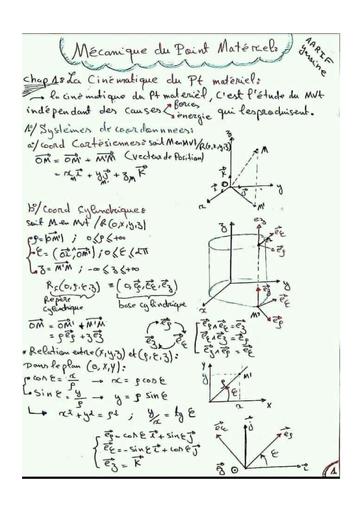 Mécanique du Point Matériel
AARIF
Yassine
Chap 1: La Cinématique du Pt matériel:
→ la cinématique du Pt matériel, c'est l'étude du MVT
indépendant des causes forces
énergie qui les produisent.
1°/ Systèmes de coordonnées:
a°/ coord Cartésiennes: soit M en MVT /R(o,x,y,z)
OM = OM' + M'M (vecteur de Position)
= x_m i + y_m j + z_m K
b°/ Coord Cylindriques:
soit M en MVT /R(0,x,y,z)
ρ=|OM'| ; 0≤ρ≤+∞
ε=(oi,OM') ; 0≤ε≤2π
z=M'M ; -∞≤z≤+∞
R(0,ρ,ε,z) = (0,eρ,eε,ez)
Repère
cylindrique
base cylindrique
OM = OM' + M'M
= ρeρ + zez
eρ∧eε=ez
eε∧ez=eρ
ez∧eρ=eε
* Relation entre (x,y,z) et (ρ,ε,z):
Dans le plan (0,X,Y):
cosε = x/ρ → x = ρcosε
sinε = y/ρ → y = ρsinε
↳ x²+y²=ρ² ; y/x = tgε
eρ = cosε i + sinε j
eε = -sinε i + cosε j
ez = K
1